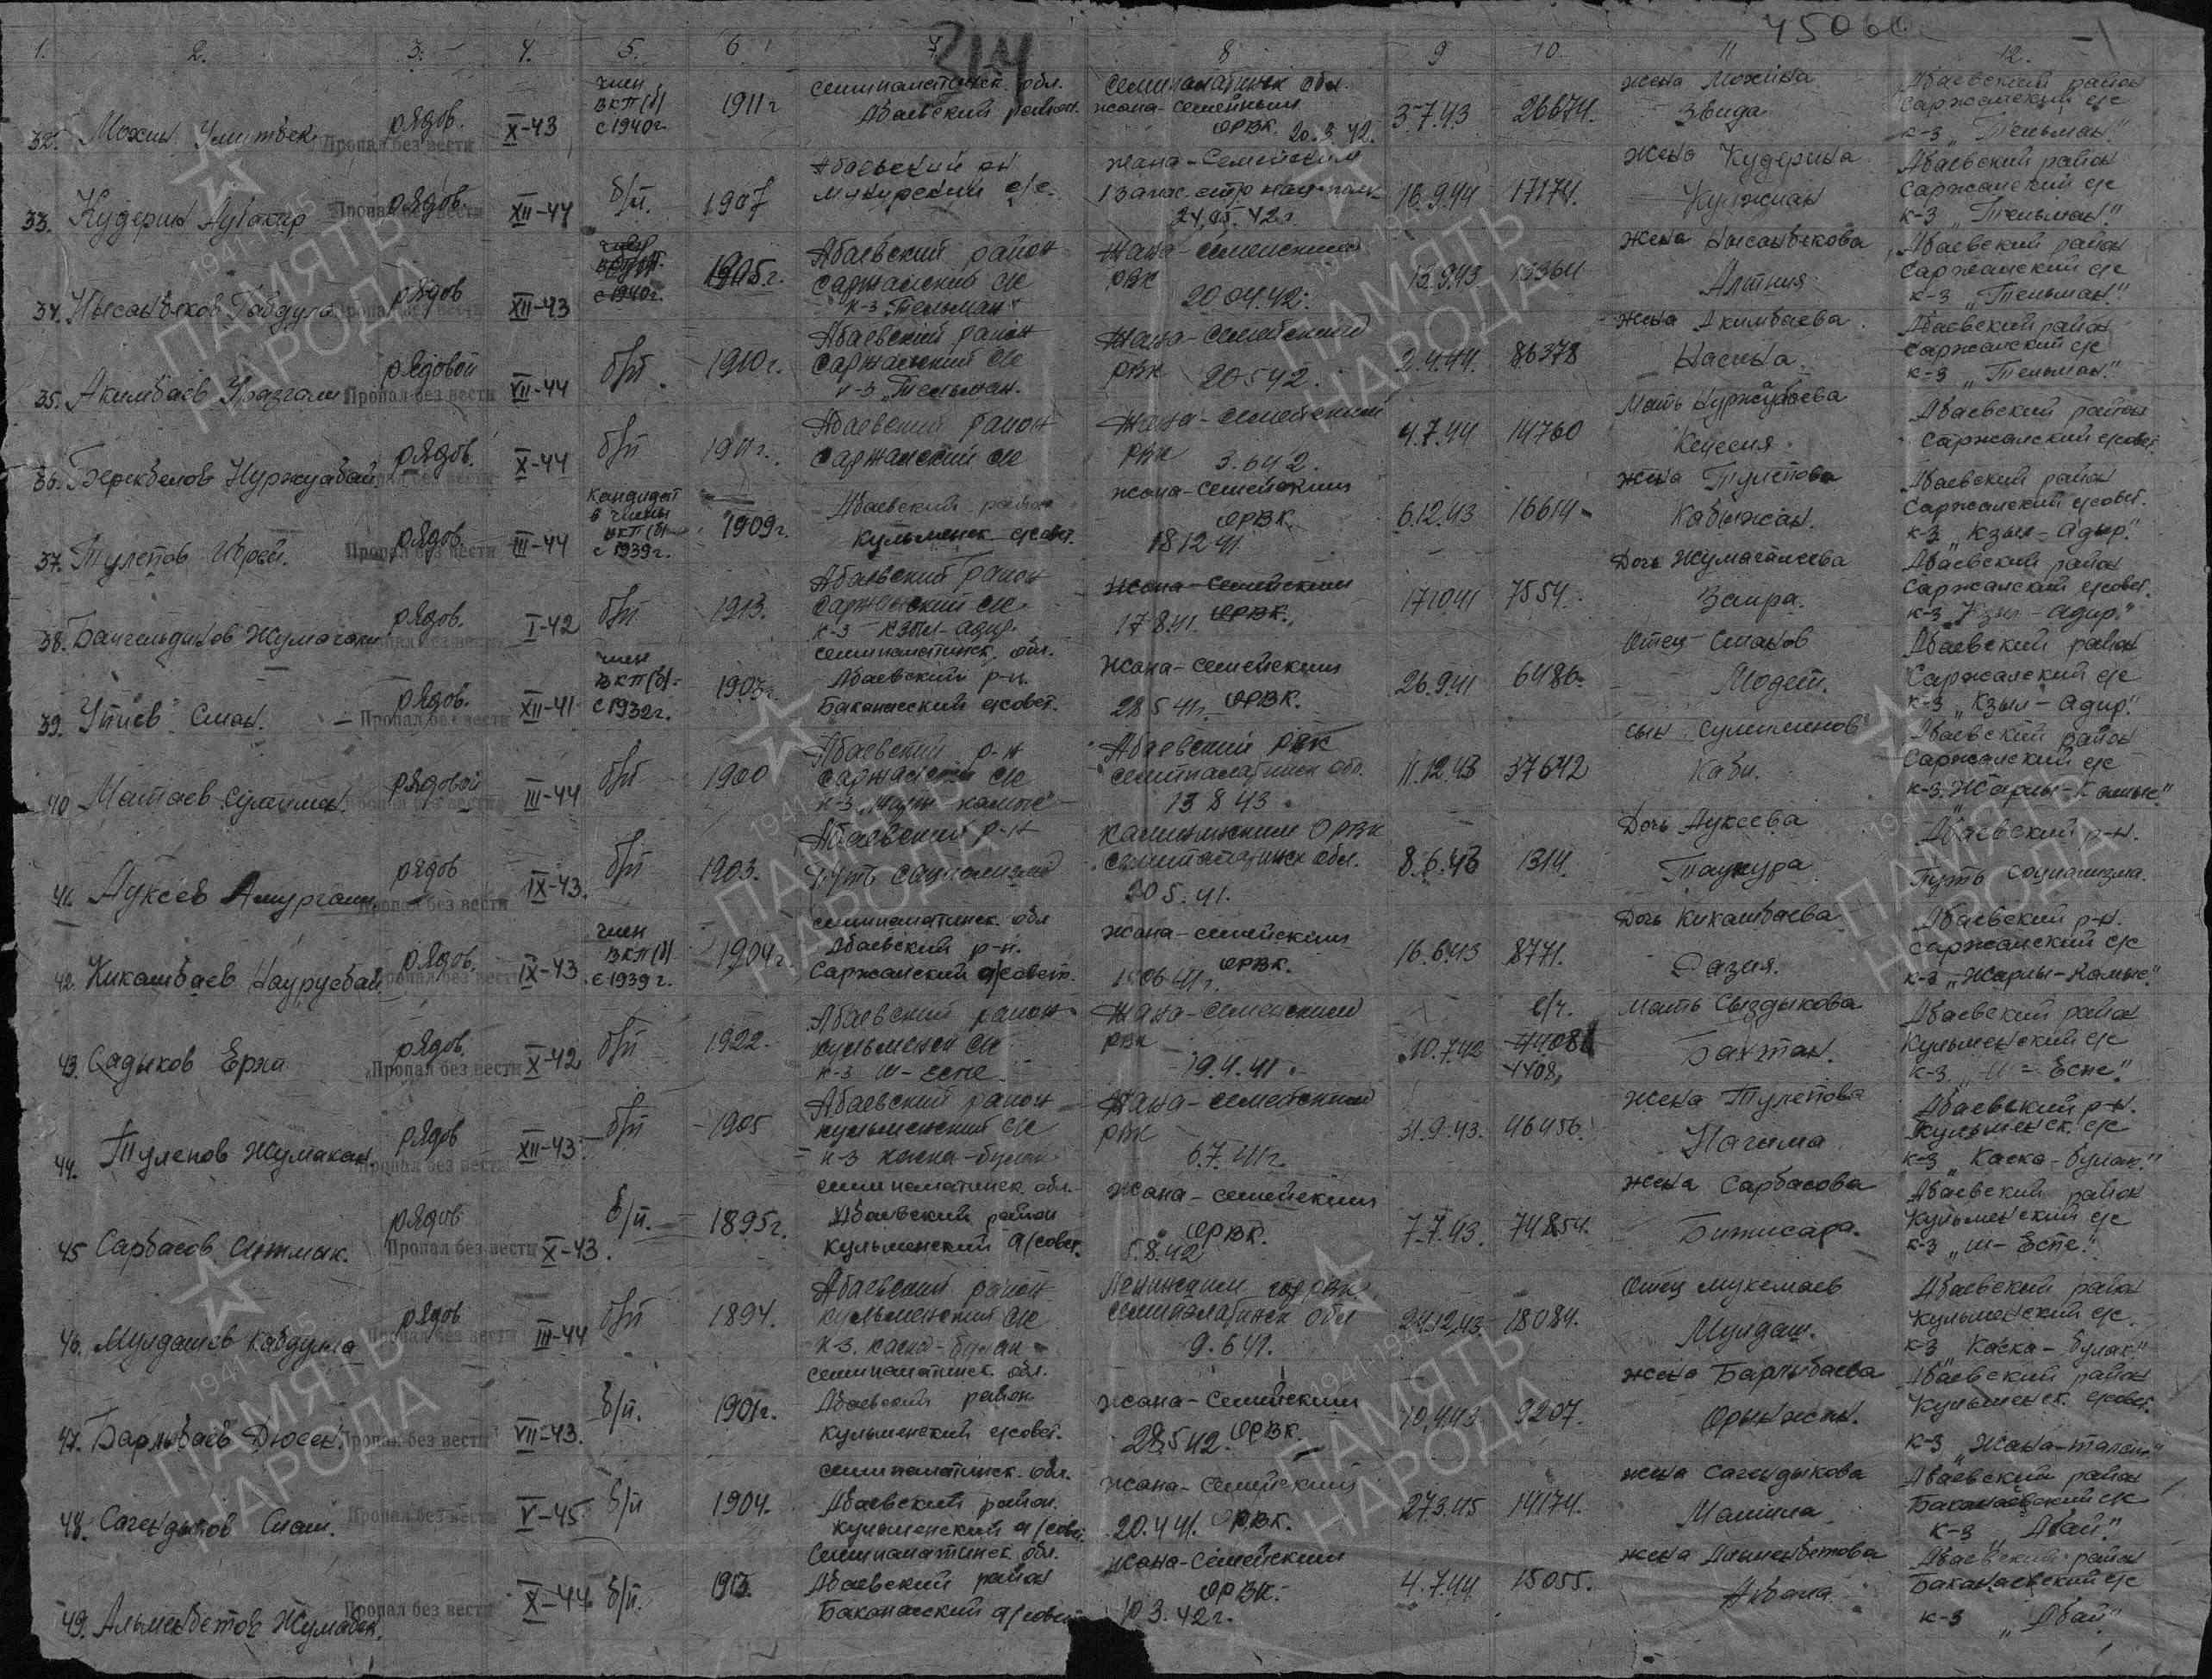 45060
214
1. 2. 3. 4. 5. 6 7 8 9 10. 11 12.
32. Мохин Пропал без вести рядов. X-43 член ВКП(б) с 1940г. 1911г Семипалатинск. обл. Абаевский район. Семипалатинск обл. Жана-Семейским ОРВК. 20.3.42. 3.7.43 26674. жена Мохина Звида Абаевский район Саржалский с/с к-з „Тельман"
33. Кудерин Аубакир Пропал без вести рядов. XII-44 б/п. 1907 Абаевский рн Мукурский с/с. Жана-Семейским 24.05.42г. 16.9.44 17174. жена Кудерина Кулжиан Абаевский район Саржалский с/с к-з „Тельман"
34. Нысанбеков Габдула Пропал без вести рядов XII-43 с 1940г. 1905г. Абаевский район Саржалский с/с к-з Тельман Жана-Семейский РВК 20.04.42. 13.9.43 жена Нысанбекова Алтния Абаевский район Саржалский с/с к-з „Тельман"
35. Акимбаев Уразгали Пропал без вести рядовой VII-44 б/п. 1910г. Абаевский район Саржалский с/с к-з Тельман. Жана-Семейский РВК 20542. 2.4.44. 86378 жена Акимбаева Насина. Абаевский район Саржалский с/с к-з „Тельман"
36. Пропал без вести рядов. X-44 б/п 1911г. Абаевский район Саржалский с/с Жана-Семейский РВК 3.642. 4.7.44 14760 Мать Нуржубаева Абаевский район Саржалский с/совет.
37. Тулепов Ибрай. Пропал без вести рядов. III-44 кандидат в члены ВКП(б) с 1939г. 1909г. Абаевский район Кульменск с/совет. Жана-Семейским ОРВК. 181241 6.12.43 16614 жена Тулепова Кабыжан. Абаевский район Саржалский с/совет. к-з „Кзыл-Адыр."
38. Жумагали Пропал без вести рядов. I-42 б/п 1913. Абаевский район Саржалский с/с к-з Кзыл-Адыр. Жана-Семейским 17841. ОРВК. 171041 7554. Дочь Жумагалиева Заира. Абаевский район Саржалский с/совет. к-з „Кзыл-Адир."
39. Утиев Сман. Пропал без вести рядов. XII-41 член ВКП(б) с 1932г. 1903г. Семипалатинск. обл. Абаевский р-н. Баканасский с/совет. Жана-Семейским 28541г. ОРВК. 26.9.41 6486. Отец Сманов Модет. Абаевский район Саржалский с/с к-з „Кзыл-Адир."
40 Матаев Сулейман. Пропал без вести рядовой III-44 б/п 1900 Абаевский р-н Саржалский с/с Абаевский РВК Семипалатинск обл. 13843. 11.12.43 37642 сын Сулейменов Каби. Абаевский район Саржалский с/с к-з. „Жарлы-Камыс."
41. Ауксев Амургали Пропал без вести рядов IX-43. б/п 1903. Абаевский р-н Путь социализма Калининским ОРВК Семипалатинск обл. 205.41. 8.6.43 1314. Дочь Ауксева Таукура Абаевский р-н. Путь социализма.
42. Кикашбаев Наурусбай. Пропал без вести рядов. IX-43 член ВКП(б) с 1939г. 1904г. Семипалатинск. обл Абаевский р-н. Саржалский а/совет. Жана-Семейским ОРВК. 16.6.43 8771. Дочь Кикашбаева Разия. Абаевский р-н. Саржалский с/с к-з „Жарлы-Камыс."
43. Садыков Пропал без вести рядов. X-42 б/п 1922. Абаевский район Кульменск с/с к-з Ш-Еспе Жана-Семейский РВК 19.4.41. 10.742 с/ч. 4408 Мать Сыздыкова Бахтан. Абаевский район Кульменский с/с к-з „Ш-Еспе."
44. Тулепов Жумакан Пропал без вести рядов XII-43 б/п 1905 Абаевский район Кульменский с/с к-з Каска-Булак Жана-Семейский РВК 6.7.41г. 31.9.43. 46456. жена Тулепова Нагима Абаевский р-н. Кульменск. с/с к-з „Каска-Булак."
45 Сарбасов Ситмык. Пропал без вести рядов X-43. б/п. 1895г. Семипалатинск. обл. Абаевский район Кульменский а/совет. Жана-Семейским ОРВК. 5.8.42 7.7.43. 74854. жена Сарбасова Бижисара. Абаевский район Кульменский с/с к-з „Ш-Еспе."
46. Мулдашев Кабдулла Пропал без вести рядов III-44 б/п 1894. Абаевский район Кульменский с/с к-з. Каска-Булак Ленинским горРВК Семипалатинск обл 9.641. 24.12.43 18084. Отец Мулдаш. Абаевский район Кульменский с/с. к-з „Каска-Булак."
47. Барлыбаев Дюсен. Пропал без вести VII-43. б/п. 1901г. Семипалатинск. обл. Абаевский район Кульменский с/совет. Жана-Семейским 28542. ОРВК. 10.443 9207. жена Барлыбаева Орынжан. Абаевский район Кульменск. с/совет. к-з „Жана-талап"
48. Сагендыков Смаш. Пропал без вести V-45 б/п 1904. Семипалатинск. обл. Абаевский район. Кульменский а/совет. Жана-Семейский 20.441. ОРВК. 27.3.45 14174. жена Сагендыкова Малина Абаевский район Баканаевский с/с к-з „Абай."
49. Альменбетов Жумабек. Пропал без вести X-44 б/п. 1913. Семипалатинск. обл. Абаевский район Баканасский а/совет Жана-Семейским ОРВК. 10 3.42г. 4.7.44 15055. жена Альменбетова Акбала Абаевский район Баканаевский с/с к-з „Абай."
ПАМЯТЬ НАРОДА
1941-1945